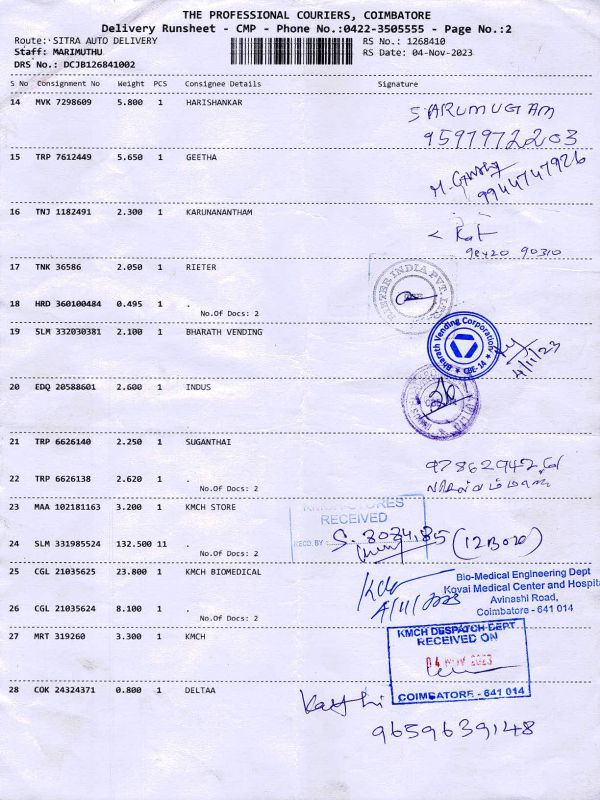 THE PROFESSIONAL COURIERS, COIMBATORE
Delivery Runsheet - CMP - Phone No.:0422-3505555 - Page No.:2
Route: SITRA AUTO DELIVERY
RS No.: 1268410
Staff: MARIMUTHU
RS Date: 04-Nov-2023
DRS No.: DCJB126841002
S No Consignment No Weight PCS Consignee Details Signature
14 MVK 7298609 5.800 1 HARISHANKAR
S ARUMUGAM
9597972203
15 TRP 7612449 5.650 1 GEETHA
9944747926
16 TNJ 1182491 2.300 1 KARUNANANTHAM
98420 90310
17 TNK 36586 2.050 1 RIETER
RIETER INDIA PVT. LTD.
18 HRD 360100484 0.495 1 .
No.Of Docs: 2
19 SLM 332030381 2.100 1 BHARATH VENDING
Bharath Vending Corporation
CBE-14
4/11/23
20 EDQ 20588601 2.600 1 INDUS
21 TRP 6626140 2.250 1 SUGANTHAI
22 TRP 6626138 2.620 1 .
No.Of Docs: 2
23 MAA 102181163 3.200 1 KMCH STORE
KMCH STORES
RECEIVED
RECD. BY
S. 8034,85 (12 Box)
24 SLM 331985524 132.500 11 .
No.Of Docs: 2
25 CGL 21035625 23.800 1 KMCH BIOMEDICAL
Bio-Medical Engineering Dept
Kovai Medical Center and Hospita
Avinashi Road,
Coimbatore - 641 014
4/11/2023
26 CGL 21035624 8.100 1 .
No.Of Docs: 2
27 MRT 319260 3.300 1 KMCH
KMCH DESPATCH DEPT.
RECEIVED ON
04 NOV 2023
COIMBATORE - 641 014
28 COK 24324371 0.800 1 DELTAA
9659639148